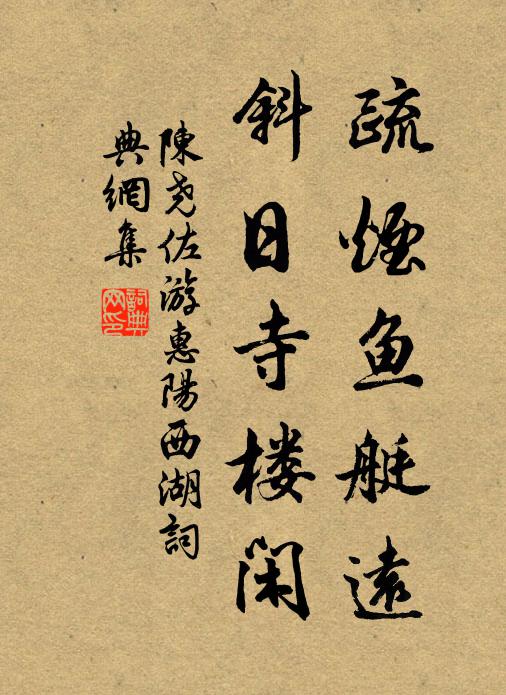 疏煙鱼艇遠
斜日寺楼闲
陳尧佐游惠陽西湖詞
典網集
詞典
网印